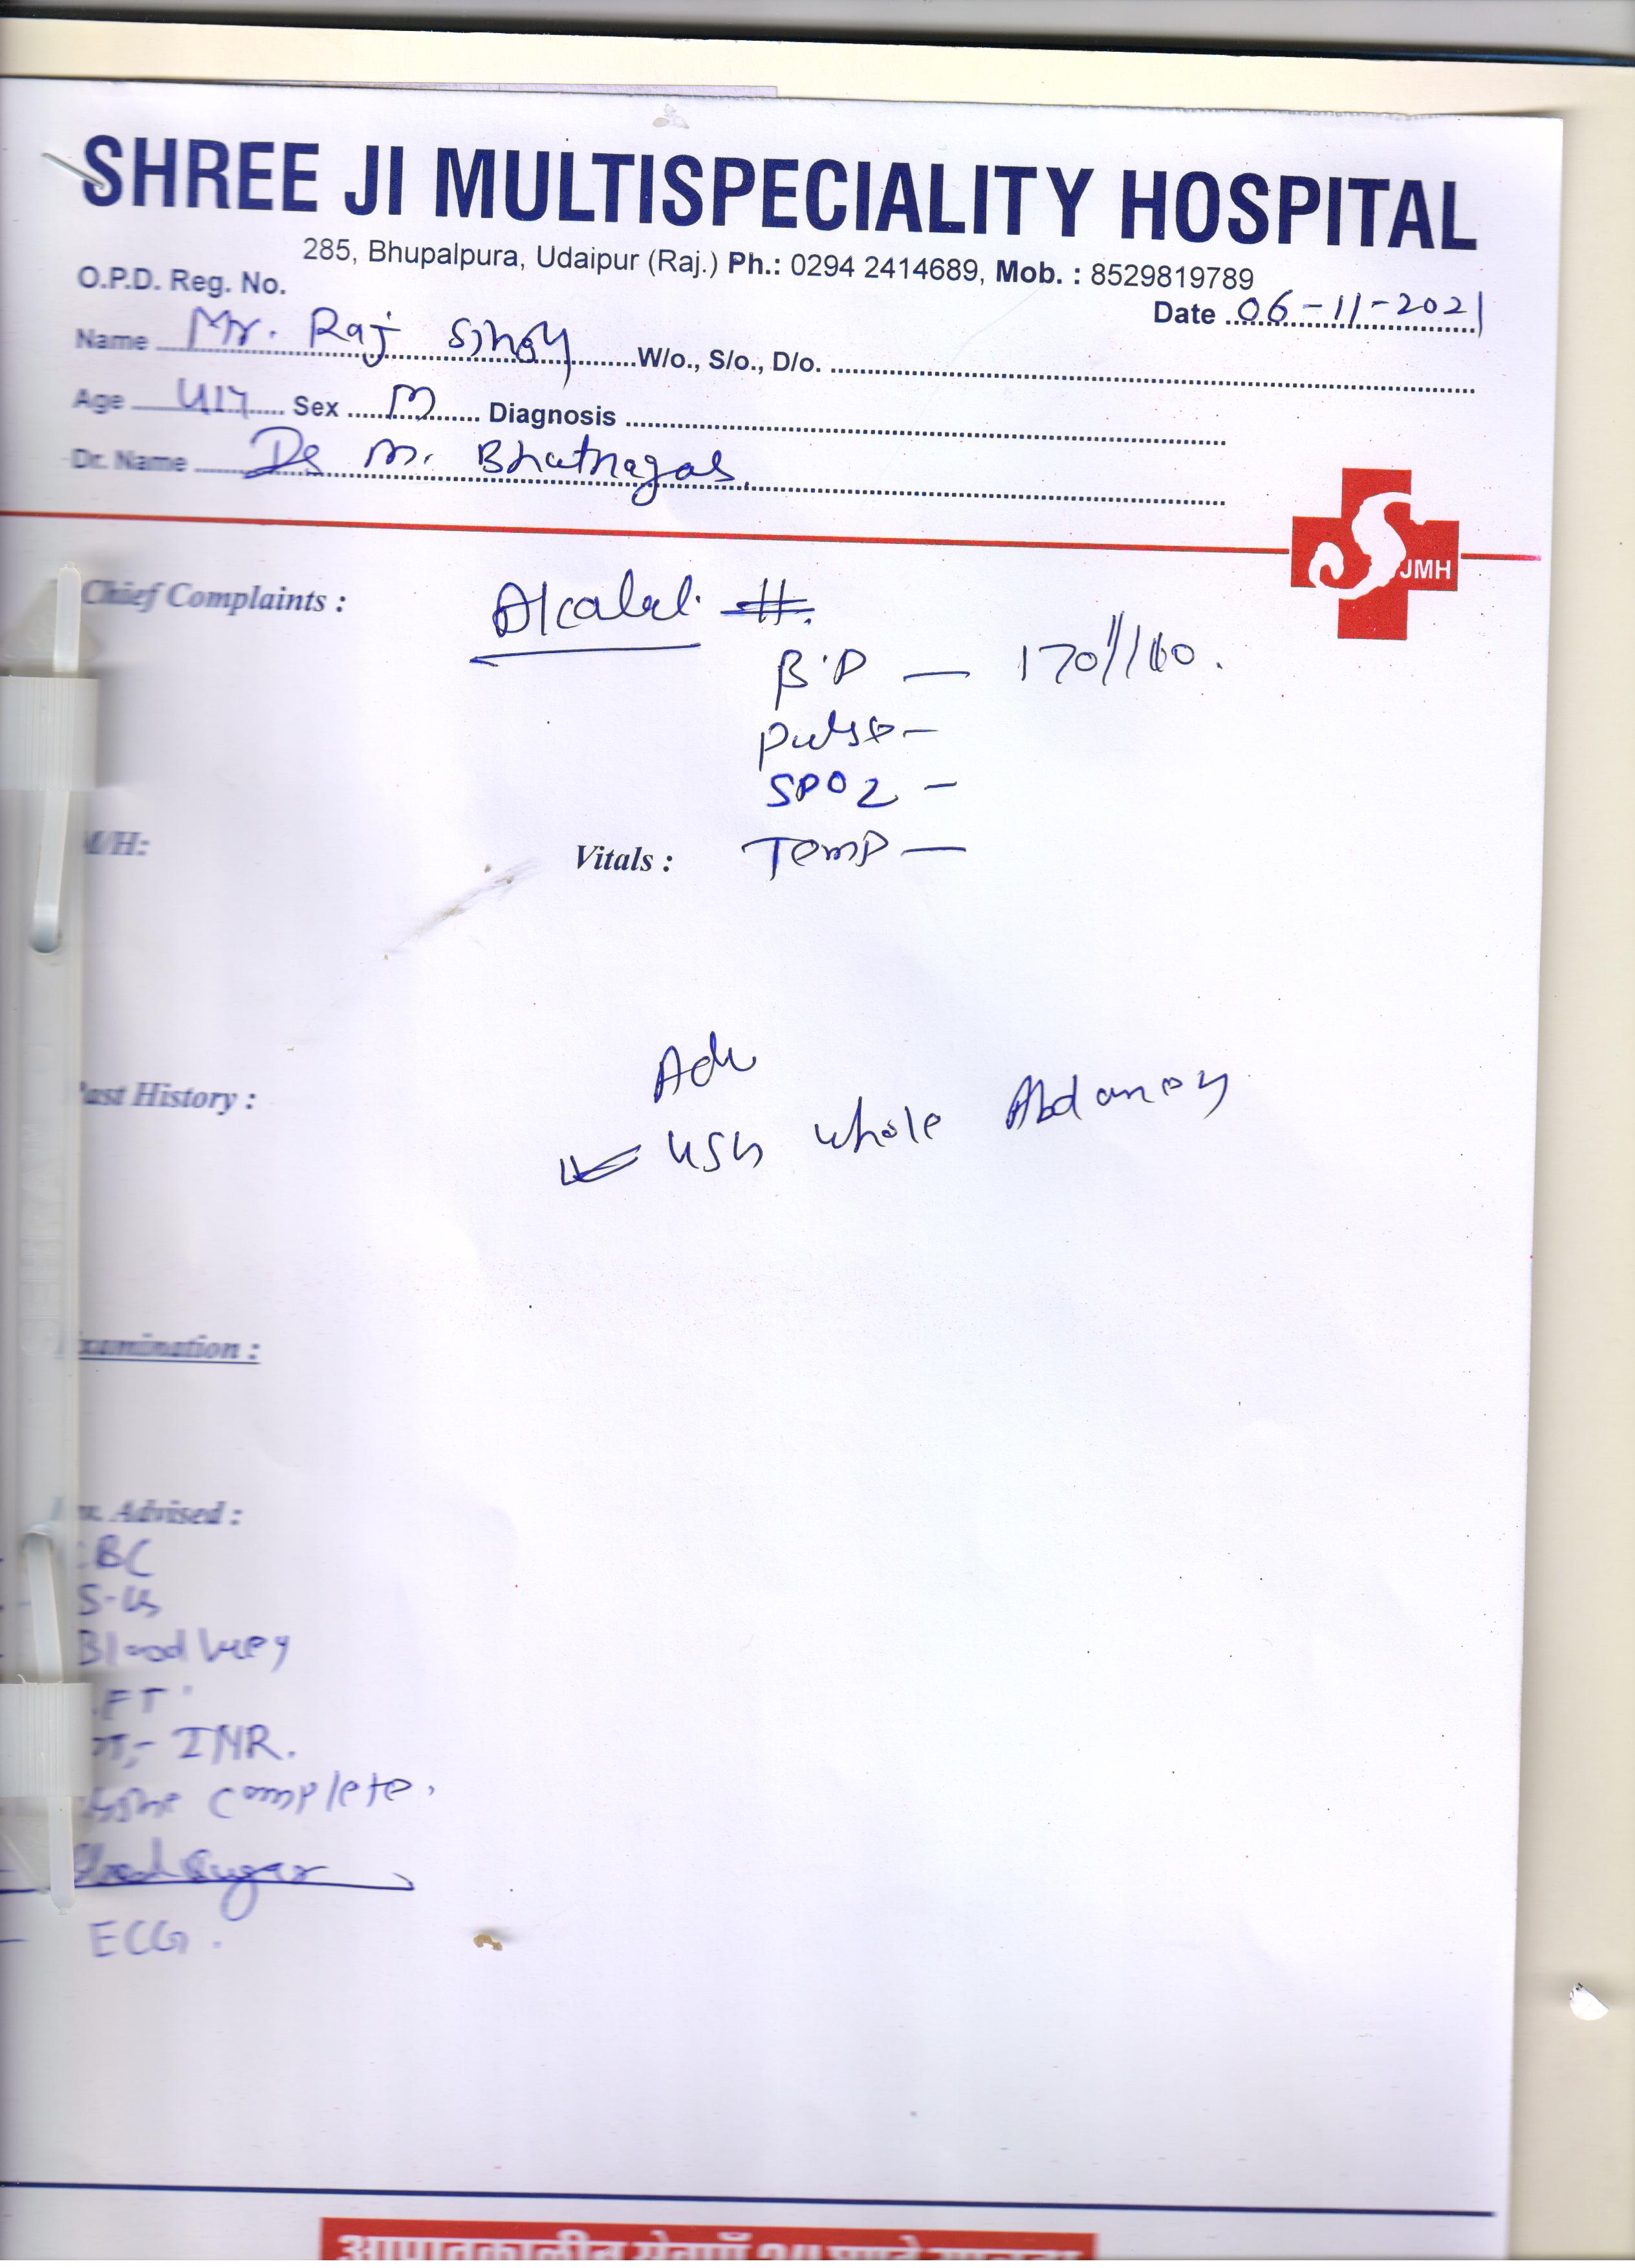 SHREE JI MULTISPECIALITY HOSPITAL
285, Bhupalpura, Udaipur (Raj.) Ph.: 0294 2414689, Mob. : 8529819789
O.P.D. Reg. No.
Date 06-11-2021
Name Mr. Raj W/o., S/o., D/o.
Age Sex M Diagnosis
Dr. Name Dr M. Bhatnagar
JMH
Chief Complaints :
B.P — 170/
Pulse -
SPO2 -
M/H: Vitals : Temp —
Past History :
Adv
USG whole Abdomen
Examination :
Advised :
CBC
Blood Urey
FT
INR.
complete.
Blood Sugar
- ECG.